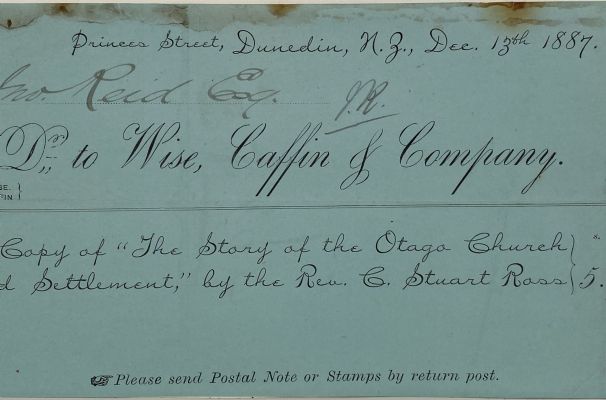 Princes Street, Dunedin, N.Z., Dec. 13th 1887.
Jno. Reid Esq. J.R.
Dr. to Wise, Caffin & Company.
SE.
FIN }
Copy of "The Story of the Otago Church } s.
d Settlement," by the Rev. C. Stuart Ross } 5.
☞ Please send Postal Note or Stamps by return post.